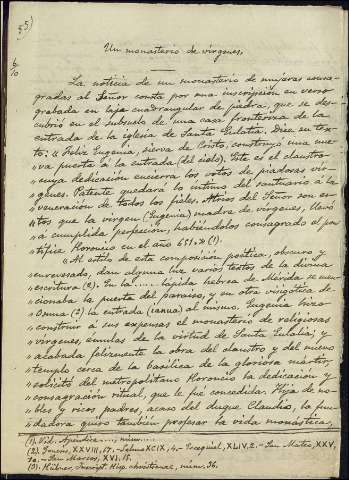 55)
Un monasterio de vírgenes.
La noticia de un monasterio de mujeres consa-
gradas al Señor consta por una inscripción en verso
grabada en laja cuadrangular de piedra, que se des-
cubrió en el subsuelo de una casa fronteriza de la
entrada de la iglesia de Santa Eulalia. Dice su tex-
to: « Feliz Eugenia, sierva de Cristo, construyó una nue-
va puerta á la entrada (del cielo). Este es el claustro
cuya dedicación encierra los votos de piadosas vír-
genes. Patente quedará lo íntimo del santuario á la
veneración de todos los fieles. Atrios del Señor son es-
tos que la virgen (Eugenia) madre de vírgenes, llevó
á cumplida perfección, habiéndolos consagrado el pon-
tífice Horoncio en el año 651.» (1).
Al estilo de esta composición poética, obscuro y
enrevesado, dan alguna luz varios textos de la divina
escritura (2). En la ...... lápida hebrea de Mérida se men-
cionaba la puerta del paraíso, y en otra visigótica de
(2) la entrada (ianua) al mismo. Eugenia hizo
construir á sus expensas el monasterio de religiosas
vírgenes, émulas de la virtud de Santa Eulalia; y
acabada felizmente la obra del claustro y del nuevo
templo cerca de la basílica de la gloriosa mártir,
solicitó del metropolitano Horoncio la dedicación y
consagración ritual, que le fue concedida. Hija de no-
bles y ricos padres, acaso del duque Claudio, la fun-
dadora quiso también profesar la vida monástica,
(1). Vid. Apéndice ..., núm ....
(2). Génesis, XXVIII, 17. - Salmo XCIX, 4. - Ezequiel, XLIV, 2. - San Mateo, XXV,
10. - San Marcos, XVI, 18.
(3). Hübner, Inscript. Hisp. christianae, núm. 36.